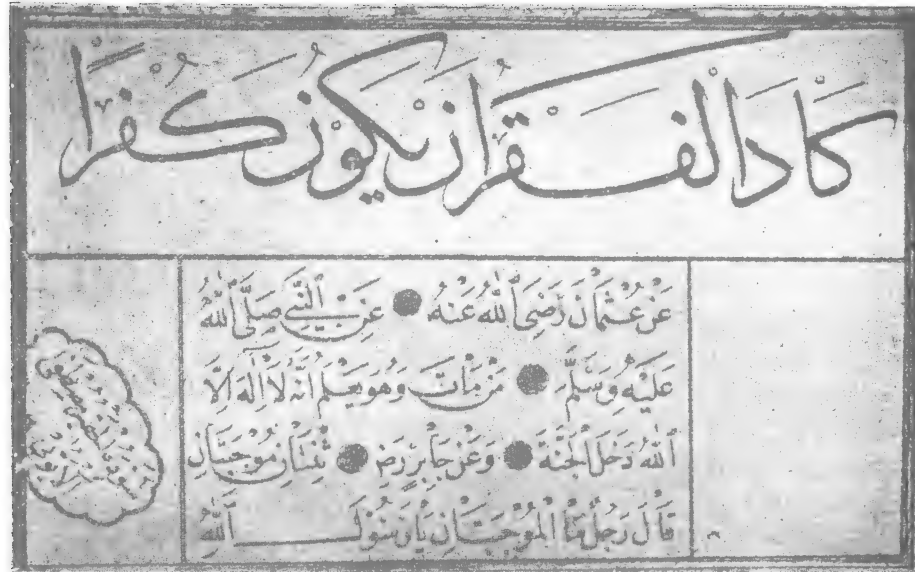 كَادَ الْفَقْرُ اَنْ يَكُوْنَ كُفْرًا
عَنْ عُثْمَانَ رَضِىَ اللّٰهُ عَنْهُ ● عَنِ النَّبِيِّ صَلَّى اللّٰهُ
عَلَيْهِ وَسَلَّمَ ● مَنْ مَاتَ وَهُوَ يَعْلَمُ اَنَّهُ لَا اِلٰهَ اِلَّا
اللّٰهُ دَخَلَ الْجَنَّةَ ● وَعَنْ جَابِرٍ رَضِ ● ثِنْتَانِ مُوْجِبَتَانِ
قَالَ رَجُلٌ مَا الْمُوْجِبَتَانِ يَا رَسُوْلَ اللّٰهِ